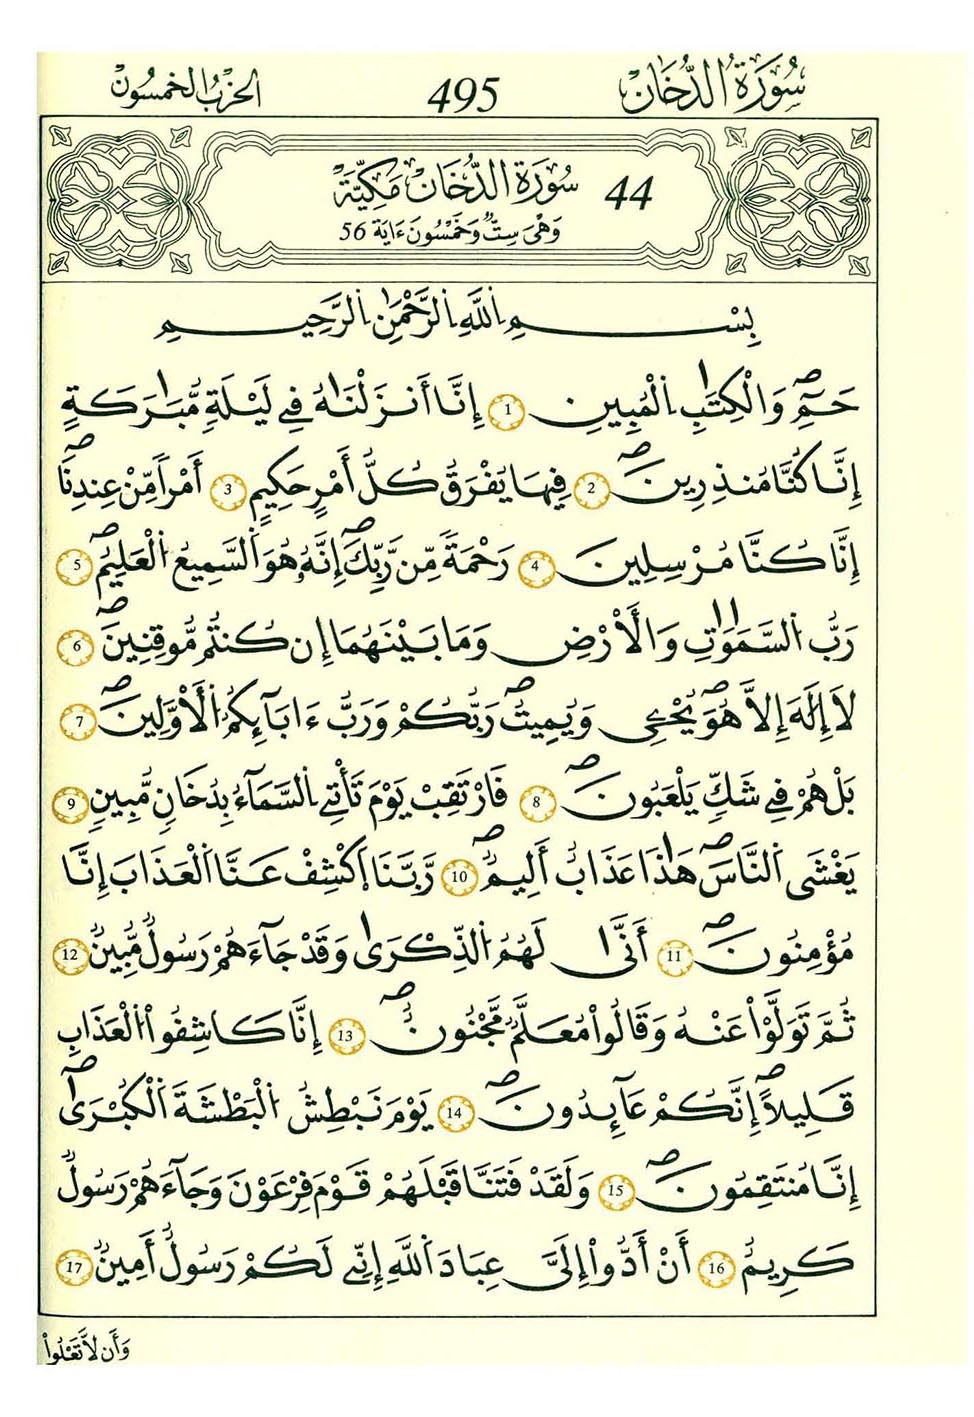 سُورَةُ الدُّخَانِ 495 الحِزْبُ الخَمْسُون
44 سُورَةُ الدُّخَانِ مَكِّيَّة
وَهْيَ سِتٌّ وَخَمْسُونَ ءَايَة 56
بِسْمِ اِللَّهِ اِلرَّحْمَٰنِ اِلرَّحِيمِ
حَمِٓۖ وَالْكِتَٰبِ اِلْمُبِينِ 1 إِنَّا أَنزَلْنَٰهُ فِے لَيْلَةٖ مُّبَٰرَكَةٍ
إِنَّا كُنَّا مُنذِرِينَۖ 2 فِيهَا يُفْرَقُ كُلُّ أَمْرٍ حَكِيمٍ 3 أَمْراٗ مِّنْ عِندِنَاۖ
إِنَّا كُنَّا مُرْسِلِينَ 4 رَحْمَةٗ مِّن رَّبِّكَۖ إِنَّهُۥ هُوَ اَلسَّمِيعُ اُلْعَلِيمُۖ 5
رَبُّ اُلسَّمَٰوَٰتِ وَالْأَرْضِ وَمَا بَيْنَهُمَا إِن كُنتُم مُّوقِنِينَۖ 6
لَا إِلَٰهَ إِلَّا هُوَۖ يُحْيِۦ وَيُمِيتُۖ رَبُّكُمْ وَرَبُّ ءَابَآئِكُمُ اُلْأَوَّلِينَۖ 7
بَلْ هُمْ فِے شَكّٖ يَلْعَبُونَۖ 8 فَارْتَقِبْ يَوْمَ تَأْتِے اِلسَّمَآءُ بِدُخَانٖ مُّبِينٖ 9
يَغْشَى اَلنَّاسَۖ هَٰذَا عَذَابٌ أَلِيمٌۖ 10 رَّبَّنَا اَكْشِفْ عَنَّا اَلْعَذَابَ إِنَّا
مُؤْمِنُونَۖ 11 أَنَّىٰ لَهُمُ اُلذِّكْرَىٰ وَقَدْ جَآءَهُمْ رَسُولٞ مُّبِينٞ 12
ثُمَّ تَوَلَّوْاْ عَنْهُ وَقَالُواْ مُعَلَّمٞ مَّجْنُونٌۖ 13 إِنَّا كَاشِفُواْ اُلْعَذَابِ
قَلِيلاًۖ إِنَّكُمْ عَآئِدُونَۖ 14 يَوْمَ نَبْطِشُ اُلْبَطْشَةَ اَلْكُبْرَىٰۖ
إِنَّا مُنتَقِمُونَۖ 15 وَلَقَدْ فَتَنَّا قَبْلَهُمْ قَوْمَ فِرْعَوْنَ وَجَآءَهُمْ رَسُولٞ
كَرِيمٌ 16 أَنْ أَدُّواْ إِلَيَّ عِبَادَ اَللَّهِ إِنِّے لَكُمْ رَسُولٌ أَمِينٞ 17
وَأَن لَّا تَعْلُواْ